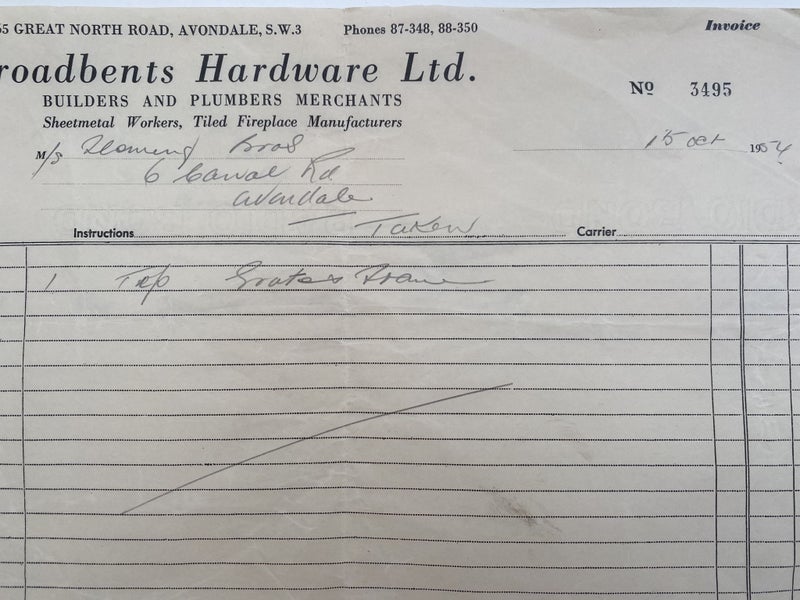 55 GREAT NORTH ROAD, AVONDALE, S.W.3 Phones 87-348, 88-350 Invoice
roadbents Hardware Ltd.
BUILDERS AND PLUMBERS MERCHANTS Nº 3495
Sheetmetal Workers, Tiled Fireplace Manufacturers
M/s Fleming Bros 15 Oct 1954
6 Canal Rd
Avondale
Instructions Taken Carrier
1 Top Grate & Frame